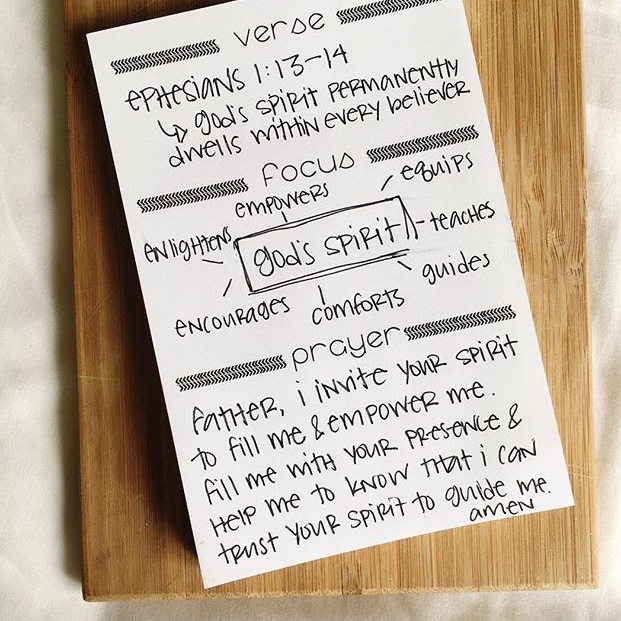 verse
EPHESIANS 1:13-14
↳ GOD'S SPIRIT PERMANENTLY
DWELLS WITHIN EVERY BELIEVER
focus
EMPOWERS
EQUIPS
ENLIGHTENS
GOD'S SPIRIT
TEACHES
GUIDES
ENCOURAGES
COMFORTS
prayer
FATHER, i INVITE YOUR SPIRIT
TO FILL ME & EMPOWER ME.
FILL ME WITH YOUR PRESENCE &
HELP ME TO KNOW THAT i CAN
TRUST YOUR SPIRIT TO GUIDE ME.
AMEN